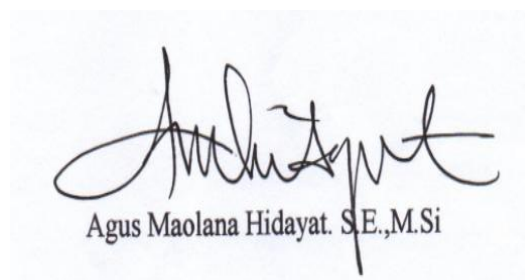 Agus Maolana Hidayat. S.E.,M.Si